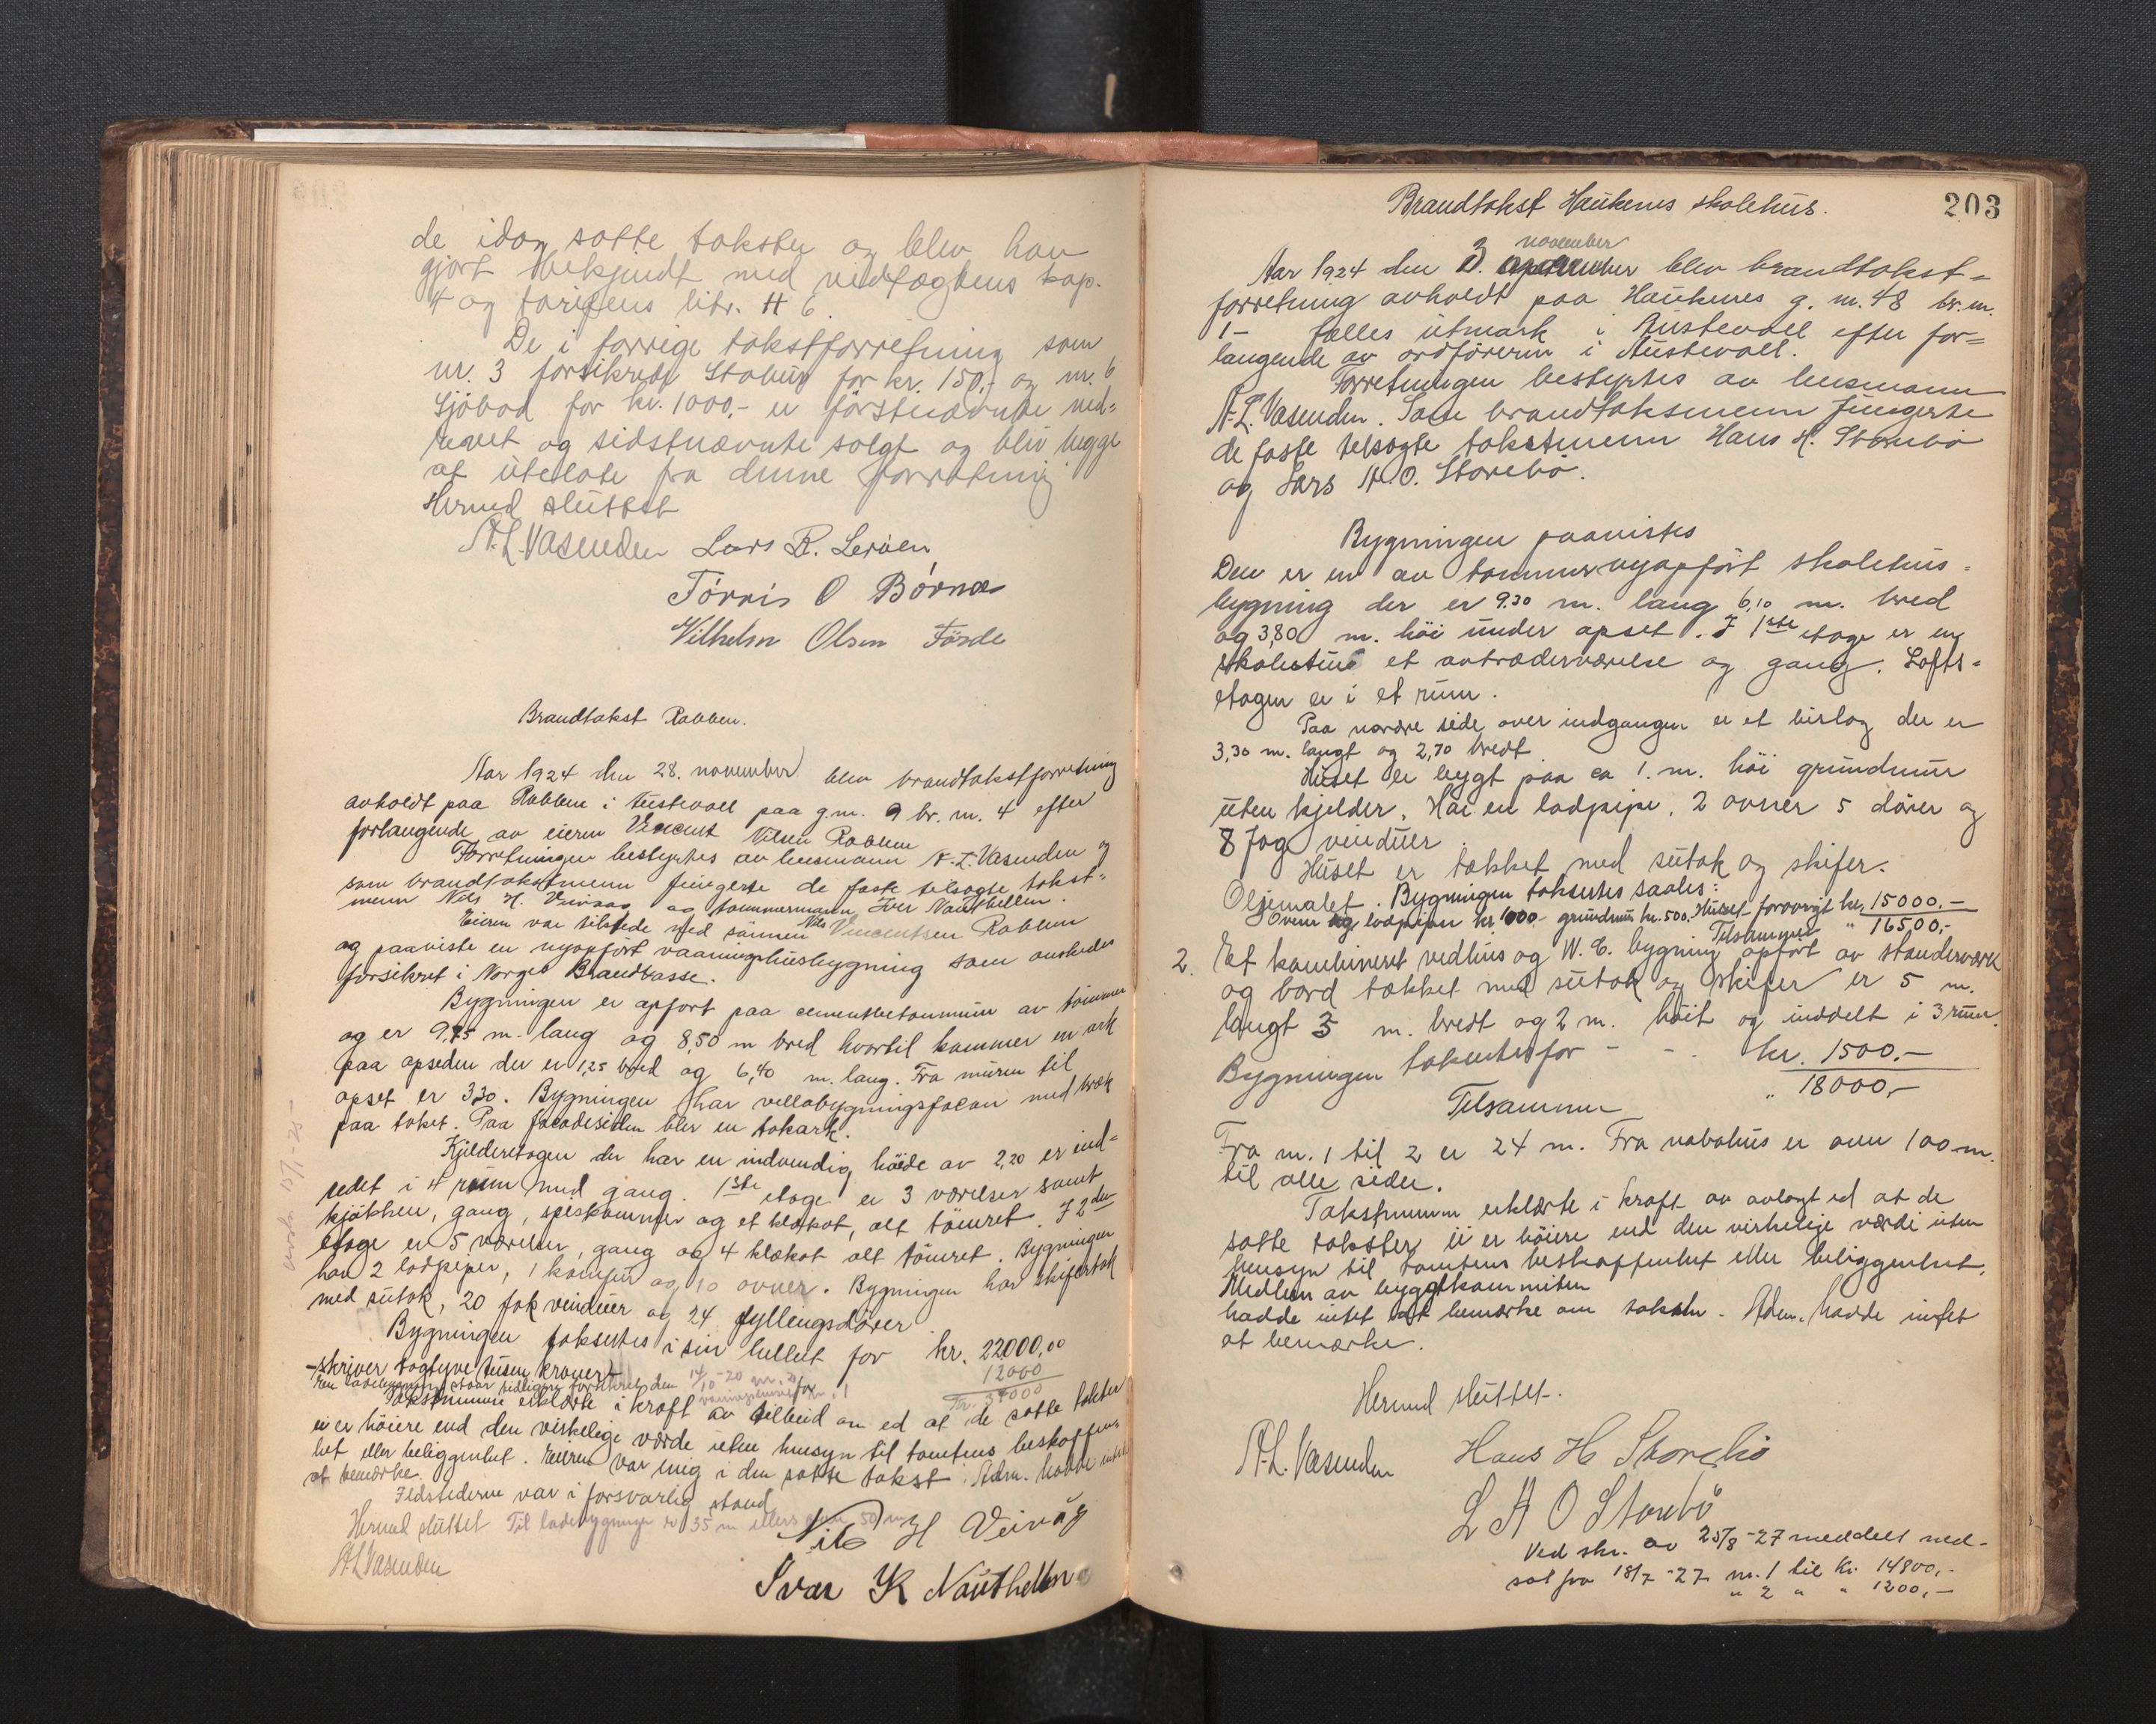 de idag satte takster og blev han
gjort bekjendt med vedtægtens kap.
4 og tarifens litr. H 6.
De i forrige takstforretning som
nr. 3 forsikrede Stabur for kr. 150,- og nr. 6
Sjöbod for kr. 1000,- er förstnævnte ned=
revet og sidstnævnte solgt og blir begge
at utelate fra denne forretning
Hermed sluttet
A. L. Vasenden Lars R. Leröen
Törris O Börnæs
Vilhelm Olsen Förde
Brandtakst Rabben.
Aar 1924 den 28. november blev brandtakstforretning
avholdt paa Rabben i Austevoll paa g.nr. 9 br. nr. 4 efter
forlangende av eieren Vincent Nilsen Rabben
Forretningen bestyrtes av lensmann A. L. Vasenden og
som brandtakstmenn fungerte de faste tilsagte takst=
menn Nils H. Veivaag og tømmermann Iver Nauthellen.
Eieren var tilstede med sönnen Nils Vincentsen Rabben
og paaviste en nyopfört vaaningshusbygning som önskedes
forsikret i Norges Brandkasse.
Bygningen er opfört paa cementbetonmur av tömmer
og er 9,75 m. lang og 8,50 m bred hvortil kommer en ark
paa opseden der er 1,25 bred og 6,40 m. lang. Fra muren til
opset er 3.30. Bygningen har villabygningsfacon med bræk
paa taket. Paa facadesiden blir en takark.
Kjelderetagen der har en indvendig höide av 2,20 er ind=
redet i 4 rum med gang. 1ste etage er 3 værelser samt
kjökken, gang, speskammer og et klækot, alt tömret. I 2den
etage er 5 værelser, gang og 4 klækot alt tömret. Bygningen
har 2 ladpiper, 1 komfur og 10 ovner. Bygningen har skifertak
med sutak, 20 fak vinduer og 24 fyllingsdörer.
Bygningen taksertes i sin helhet for kr. 22000,00
-skriver togtyve tusen kroner-
12000
kr. 34000
En ladebygning staar tidligere forsikret den 14/10-20 nr. 2
vaaningshuset for nr. 1
Takstmenne erklærte i kraft av tilbud om ed at de satte takster
ei er höiere end den virkelige værde uten hensyn til tomtens beskaffen=
het eller beliggenhet. Eieren var enig i den satte takst. Adm. hadde intet
at bemærke.
Ildstederne var i forsvarlig stand
Hermed sluttet Til ladebygningen er 35 m ellers over 50 m
A L Vasenden
Nils H Veivåg
Ivar K Nauthellen
13/1-25-
203
Brandtakst Haukenes skolehus.
november
Aar 1924 den 3. blev brandtakst=
forretning avholdt paa Haukenes g. nr. 48 br. nr.
1- fælles utmark i Austevoll efter for=
langende av ordföreren i Austevoll.
Forretningen bestyrtes av lensmann
A. L. Vasenden. Som brandtaksmenn fungerte
de faste tilsagte takstmenn Hans H. Storebö
og Lars A. O. Storebö.
Bygningen paavistes
Den er en av tömmer nyopfört skolehus=
bygning der er 9.30 m. lang 6,10 m. bred
og 3,80 m. höi under opset. I 1ste etage er en
skolestue et avtrædesværelse og gang. Lofts=
etagen er i et rum.
Paa nordre side over indgangen er et bislag der er
3,30 m. langt og 2,70 bredt.
Huset er bygt paa ca 1. m. höi grundmur
uten kjelder. Har en ladpipe, 2 ovner 5 dörer og
8 fag vinduer.
Huset er tækket med sutak og skifer.
Oljemalet. Bygningen taksertes saales:
Ovene og ladpipen kr. 1000- grundmur kr. 500. Huset forövrigt kr. 15000.-
Tilsammen " 16500,-
2. Et kombineret vedhus og W. C. bygning opfört av stenderværk
og bord tækket med sutak og skifer er 5 m.
langt 3 m. bredt og 2 m. höit og inddelt i 3 rum.
Bygningen takseretes for - - kr. 1500.-
Tilsammen " 18000,-
Fra nr. 1 til 2 er 24 m. Fra nabohus er over 100 m.
til alle sider.
Takstmenn erklærte i kraft av avlagt ed at de
satte takster ei er höiere end den virkelige værdi uten
hensyn til tomtens beskaffenhet eller beliggenhet.
Medlem av byggekommiteen
hadde intet at bemærke om taksten. Adm. hadde intet
at bemærke.
Hermed sluttet.
A. L. Vasenden Hans H Storebö
L A O Storebö
Ved skr. av 25/8-27 meddelt ned-
sat fra 18/7-27 nr. 1 til Kr. 14800,-
" 2 " " 1200,-